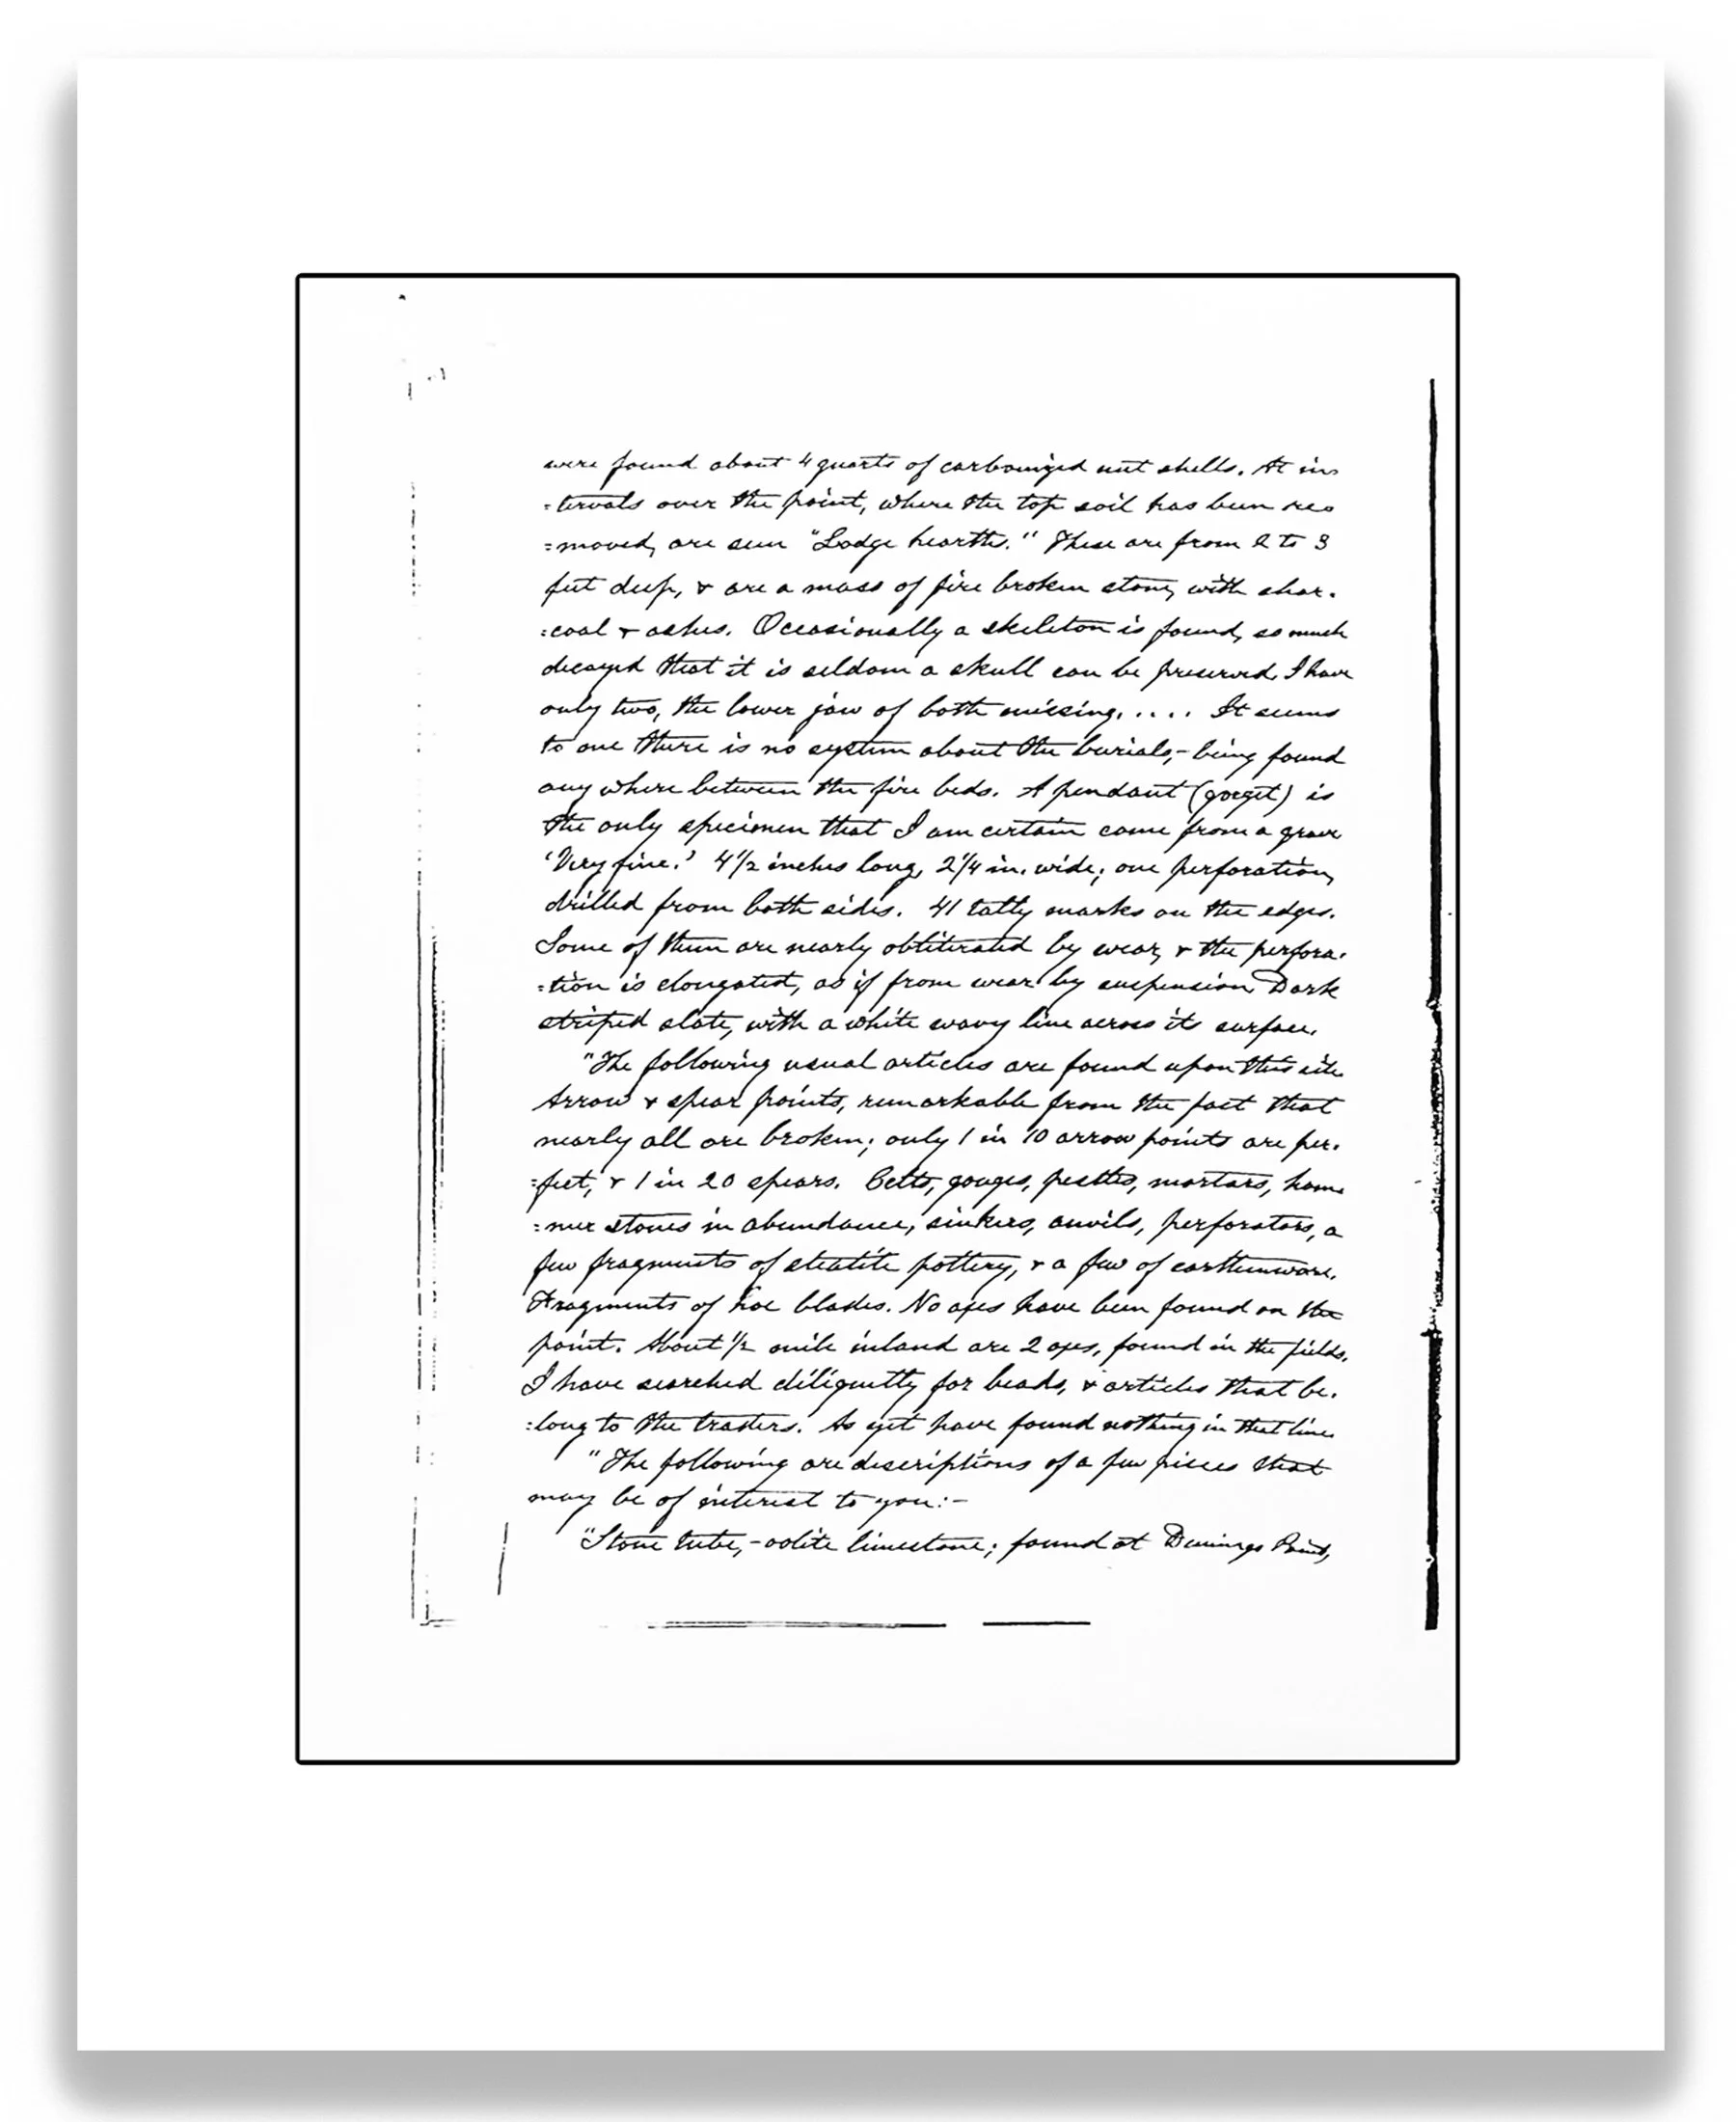 were found about 4 quarts of carbonized nut shells. At in-
=tervals over the point, where the top soil has been re-
=moved, are seen "Lodge hearths." These are from 2 to 3
feet deep, & are a mass of fire broken stone, with char-
=coal & ashes. Occasionally a skeleton is found, so much
decayed that it is seldom a skull can be preserved. I have
only two, the lower jaw of both missing. . . . . It seems
to me there is no system about the burials,- being found
any where between the fire beds. A pendant (gorget) is
the only specimen that I am certain came from a grave
'Very fine.' 4 1/2 inches long, 2 1/4 in. wide; one perforation,
drilled from both sides. 41 tally marks on the edges.
Some of them are nearly obliterated by wear, & the perfora-
=tion is elongated, as if from wear by suspension. Dark
striped slate, with a white wavy line across its surface.
"The following usual articles are found upon this site
Arrow & spear points, remarkable from the fact that
nearly all are broken; only 1 in 10 arrow points are per-
=fect, & 1 in 20 spears. Celts, gouges, pestles, mortars, ham-
=mer stones in abundance, sinkers, anvils, perforators, a
few fragments of steatite pottery, & a few of earthenware.
Fragments of hoe blades. No axes have been found on the
point. About 1/2 mile inland are 2 axes, found in the fields.
I have searched diligently for beads, & articles that be-
=long to the traders. As yet have found nothing in that line.
"The following are descriptions of a few pieces that
may be of interest to you:-
"Stone tube,- oolite limestone; found at Dennings Point,